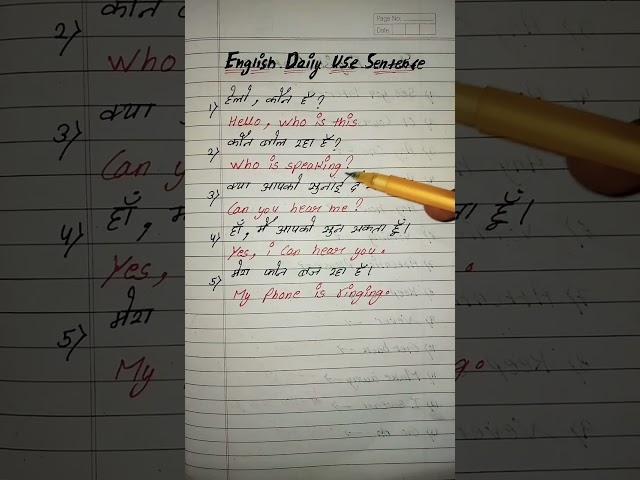 Page No.
Date
English Daily Use Sentence
1) हेलो, कौन है?
Hello, who is this
2) कौन बोल रहा है?
Who is speaking?
3) क्या आपको सुनाई दे
Can you hear me?
4) हाँ, मैं आपको सुन सकता हूँ।
Yes, i can hear you.
5) मेरा फोन बज रहा है।
My Phone is ringing.